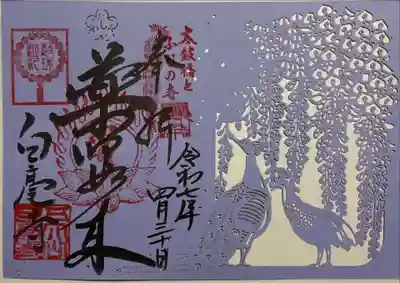 太鼓橋と
ふじの寺
奉拝
令和七年
四月三十日
薬師如来
白毫寺